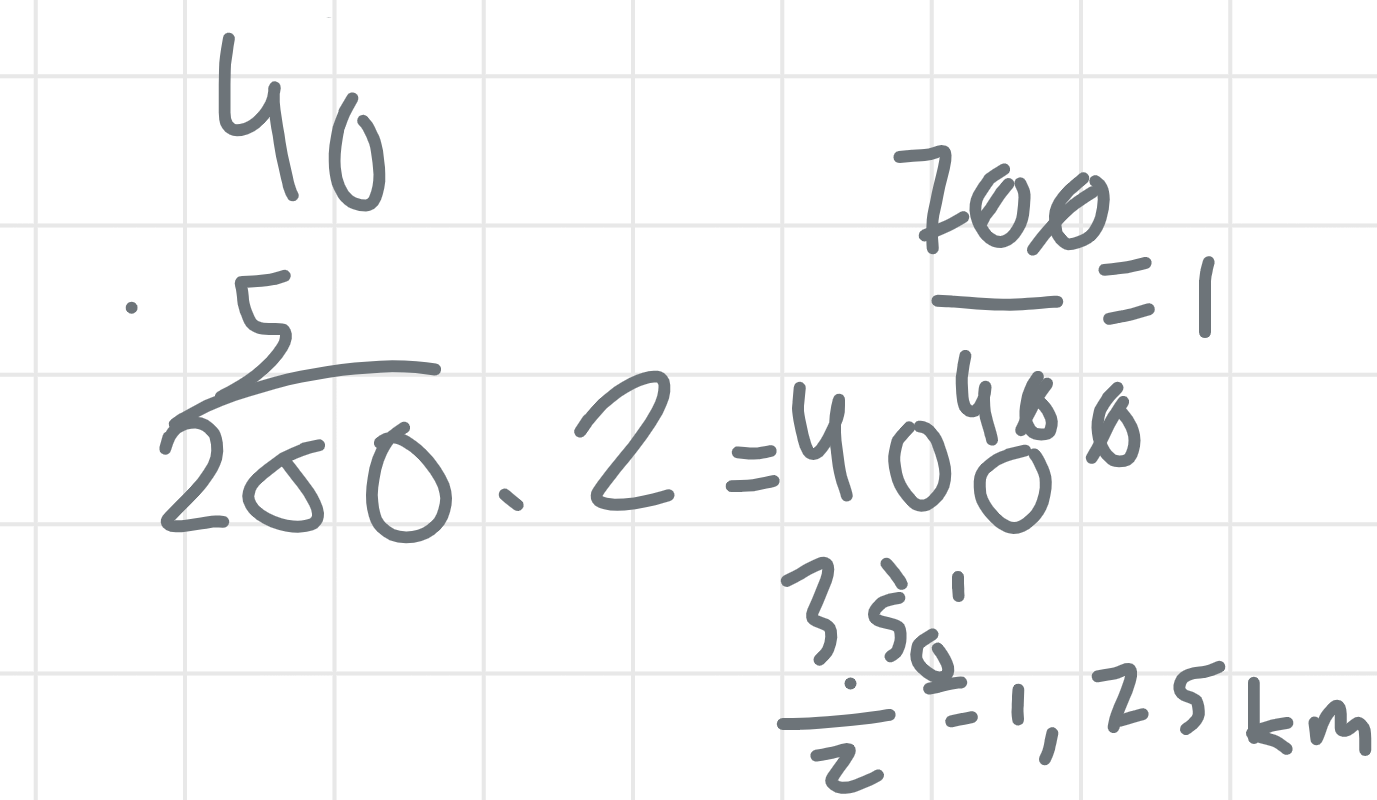 40
5
200 . 2 = 400
700
400
= 1
350
2
= 1,25 km